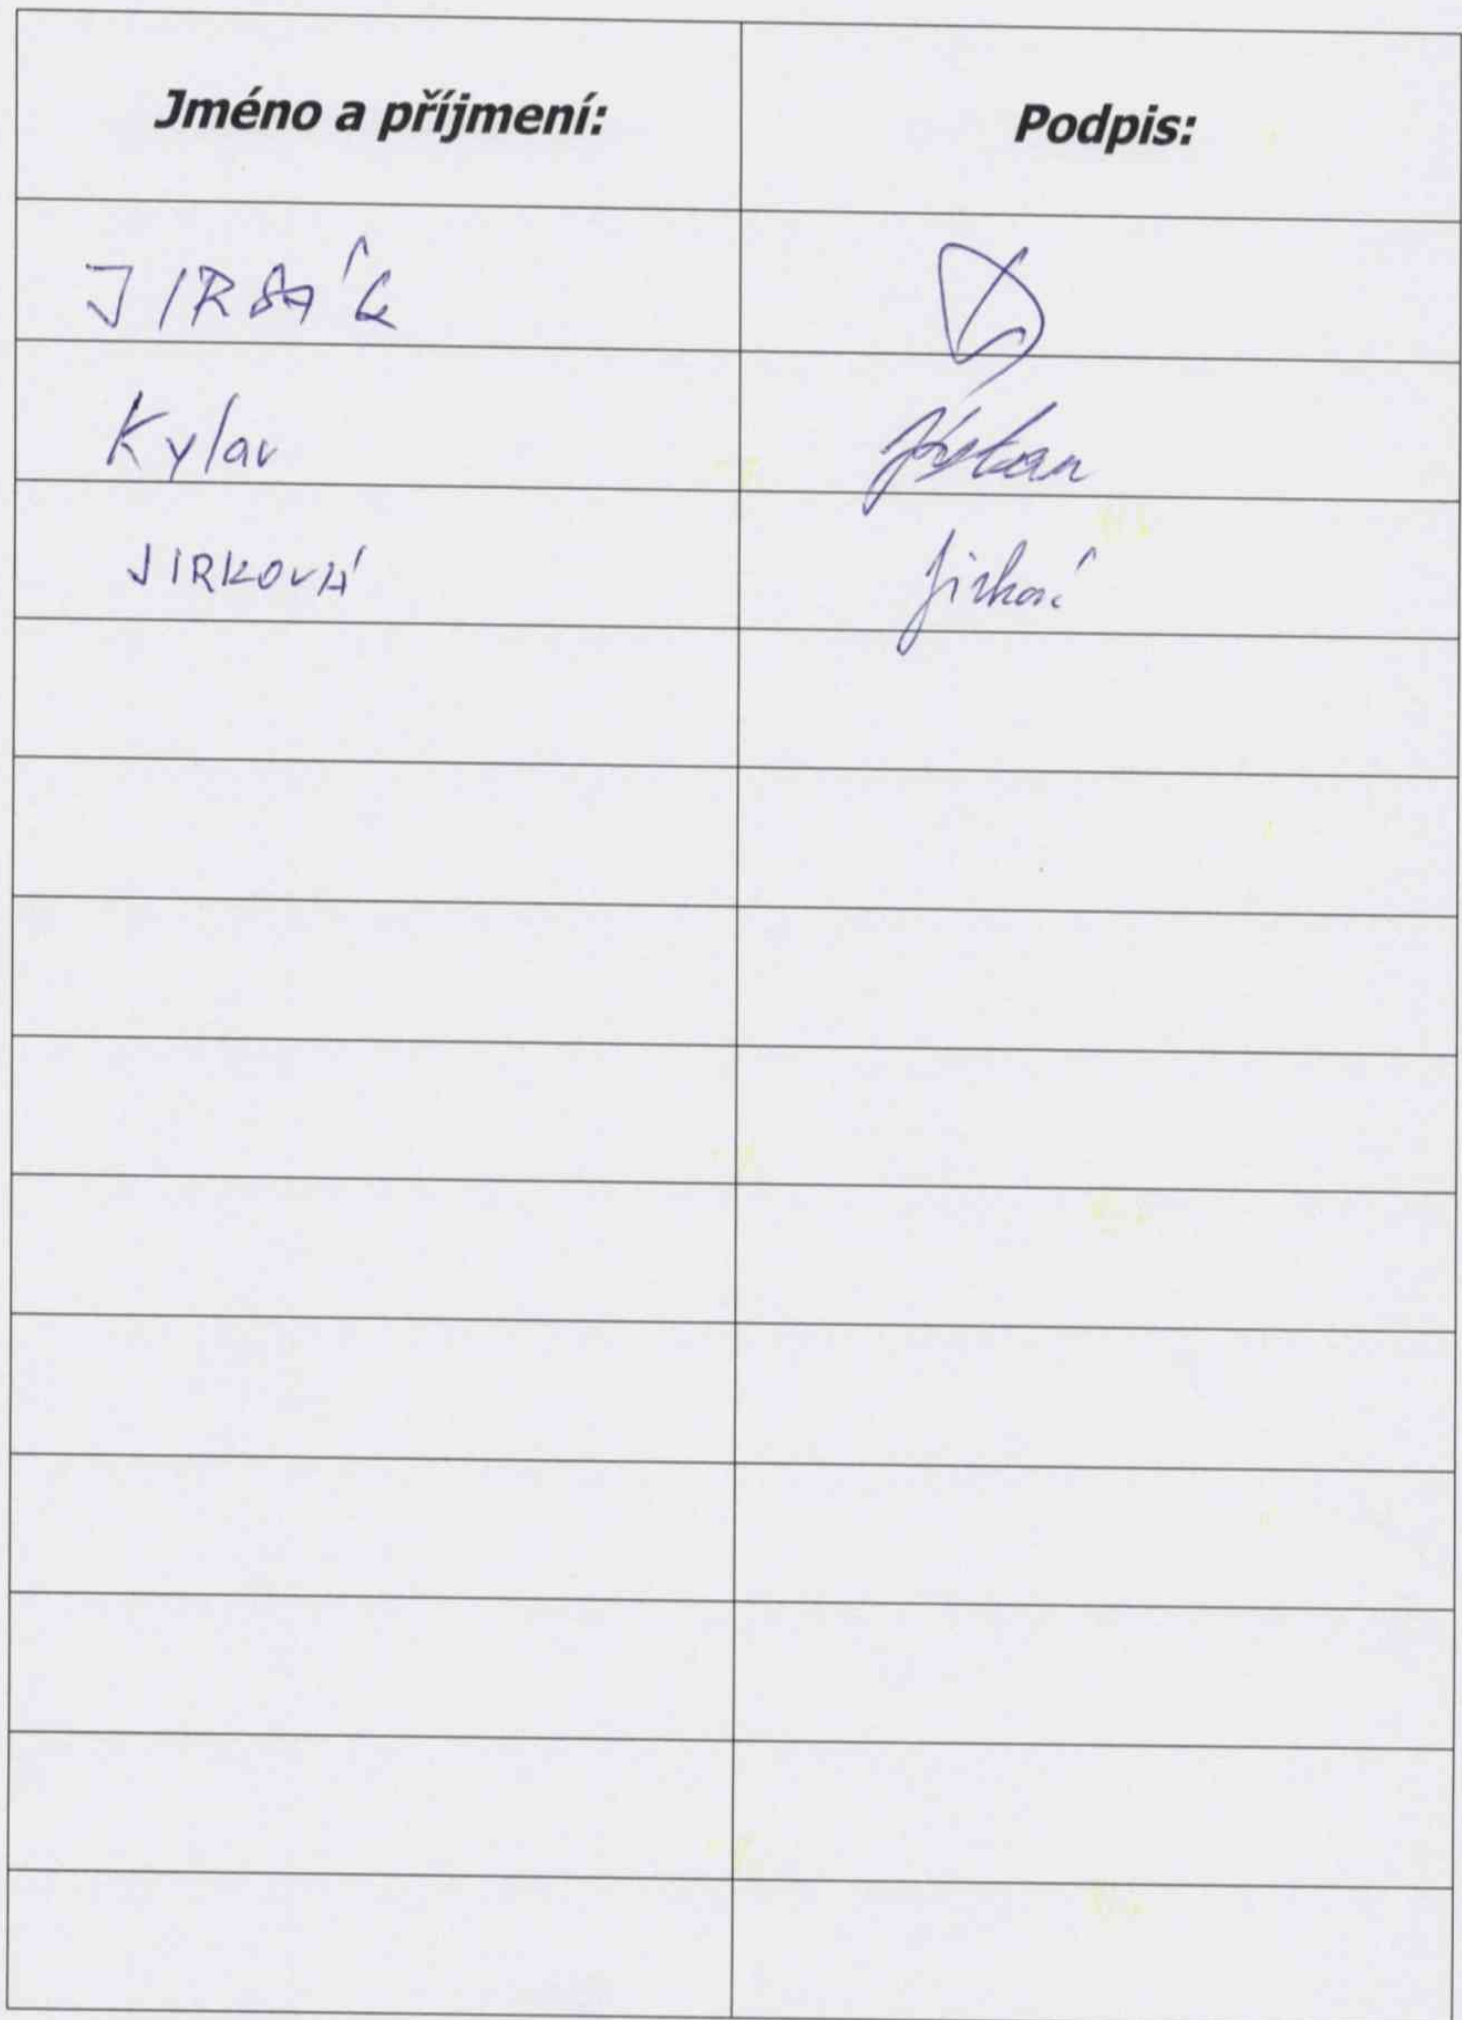 Jméno a příjmení: Podpis:
JIRSÁK
Kylar
JIRKOVÁ Jirková